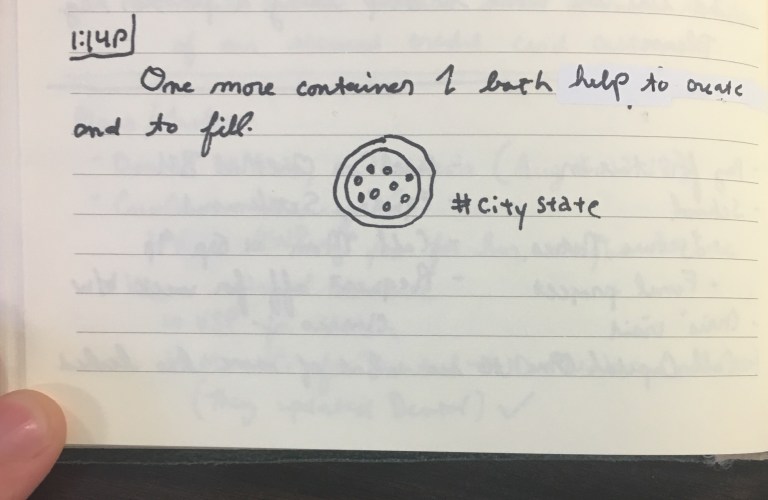 1:14P
One more container I both help to create
and to fill.
#City State